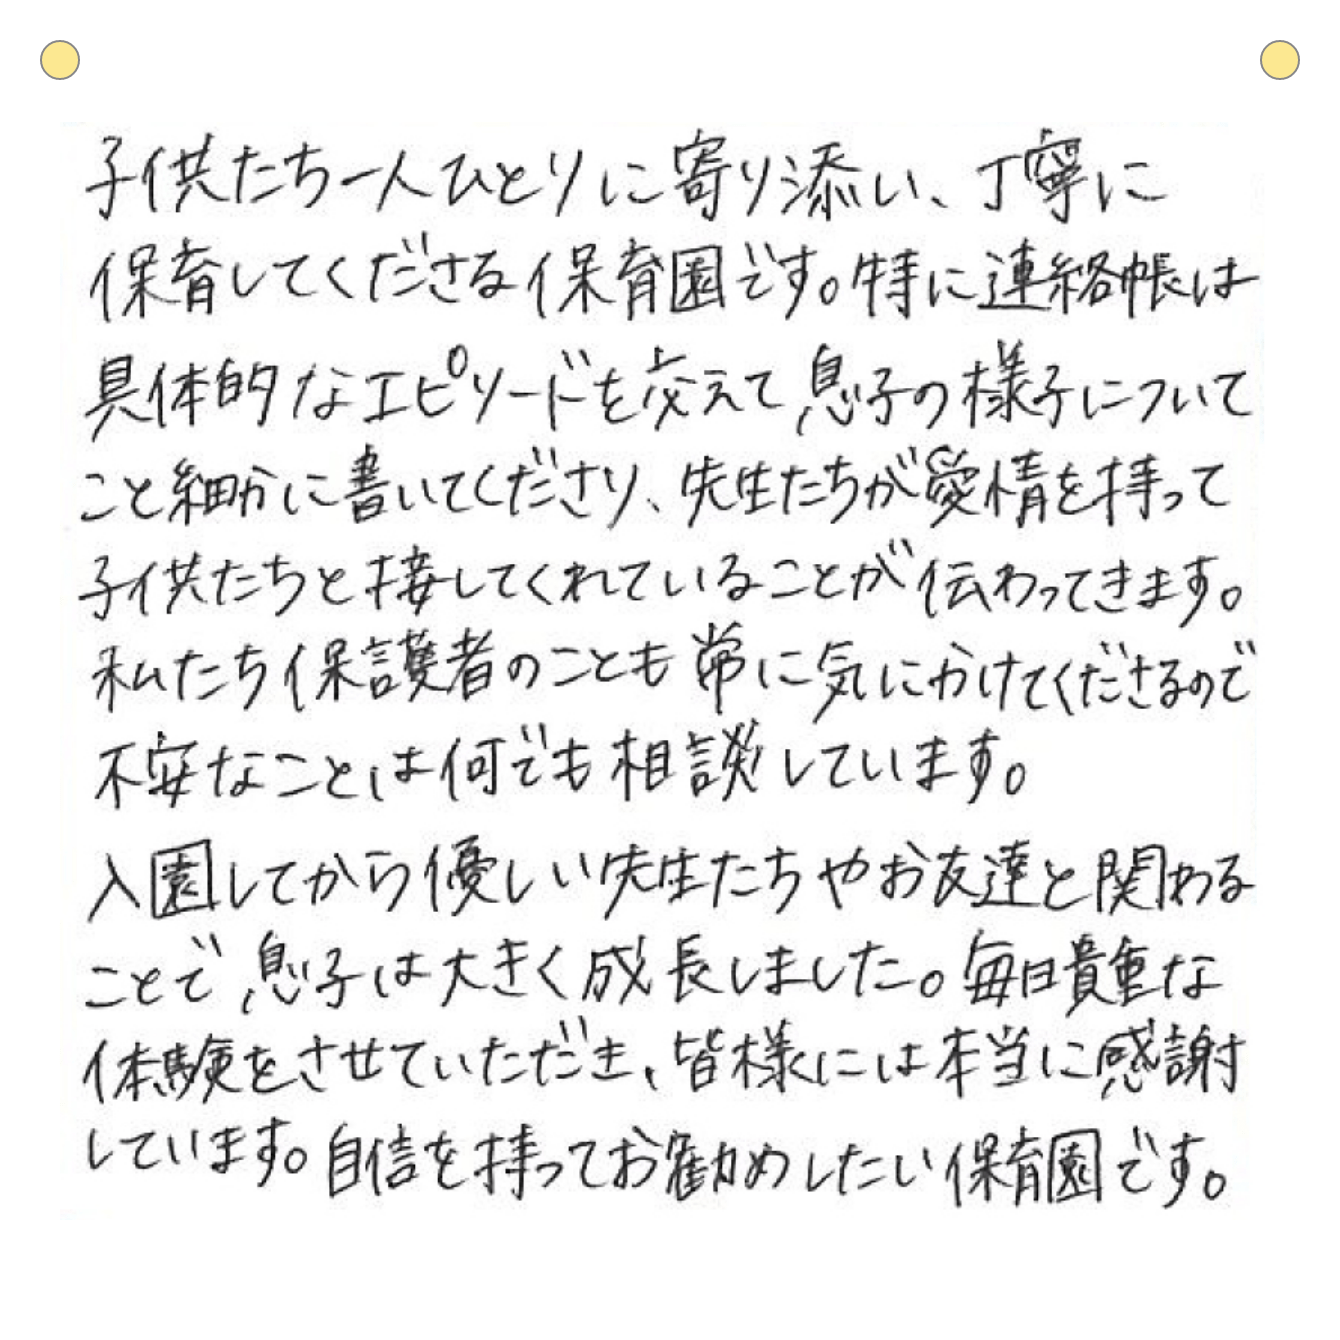 子供たち一人ひとりに寄り添い、丁寧に
保育してくださる保育園です。特に連絡帳は
具体的なエピソードを交えて、息子の様子について
こと細かに書いてくださり、先生たちが愛情を持って
子供たちと接してくれていることが伝わってきます。
私たち保護者のことも常に気にかけてくださるので
不安なことは何でも相談しています。
入園してから優しい先生たちやお友達と関わる
ことで、息子は大きく成長しました。毎日貴重な
体験をさせていただき、皆様には本当に感謝
しています。自信を持ってお勧めしたい保育園です。